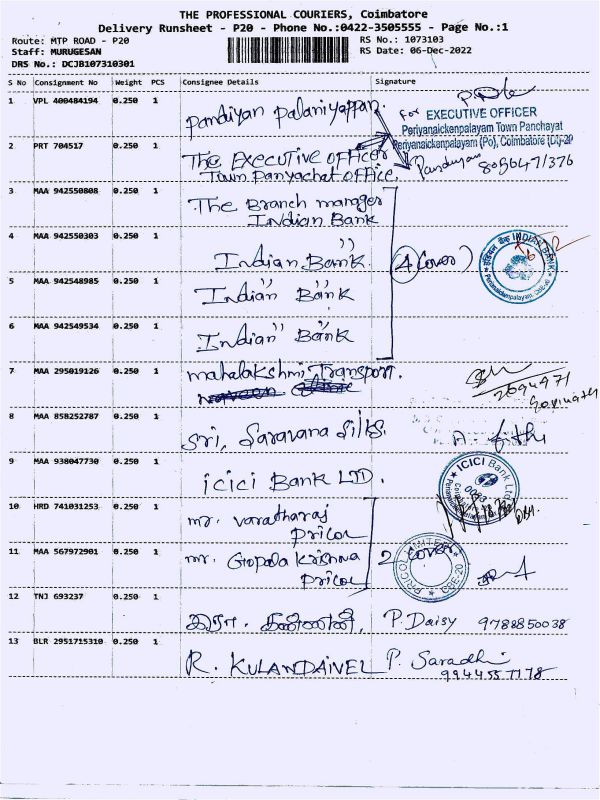 THE PROFESSIONAL COURIERS, Coimbatore
Delivery Runsheet - P20 - Phone No.:0422-3505555 - Page No.:1
Route: MTP ROAD - P20
Staff: MURUGESAN
DRS No.: DCJB107310301
RS No.: 1073103
RS Date: 06-Dec-2022
S No Consignment No Weight PCS Consignee Details Signature
1 VPL 400484194 0.250 1 Pandiyan Palaniyappan.
for EXECUTIVE OFFICER
Periyanaickenpalayam Town Panchayat
Periyanaickenpalayam (Po), Coimbatore (Dt)-20
2 PRT 704517 0.250 1 The Executive officer
Town Panyachat office. Pandiyan
3 MAA 942550808 0.250 1 The Branch manager
Indian Bank
4 MAA 942550303 0.250 1 Indian Bank (4 Cover)
INDIAN BANK
5 MAA 942548985 0.250 1 Indian Bank
6 MAA 942549534 0.250 1 Indian Bank
7 MAA 295019126 0.250 1 mahalakshmi Transport.
Govinath
8 MAA 858252787 0.250 1 Sri, Saravana Silks.
9 MAA 938047730 0.250 1 icici Bank LTD.
ICICI Bank Ltd
10 HRD 741031253 0.250 1 mr. varatharaj
Pricol
11 MAA 567972901 0.250 1 mr. Gopala Krishna
Pricol 2 cover
PRICOL LIMITED
CBE-20
12 TNJ 693237 0.250 1 P. Daisy 9788850038
13 BLR 2951715310 0.250 1 R. KULANDAIVEL P. Saradhi
9944557178